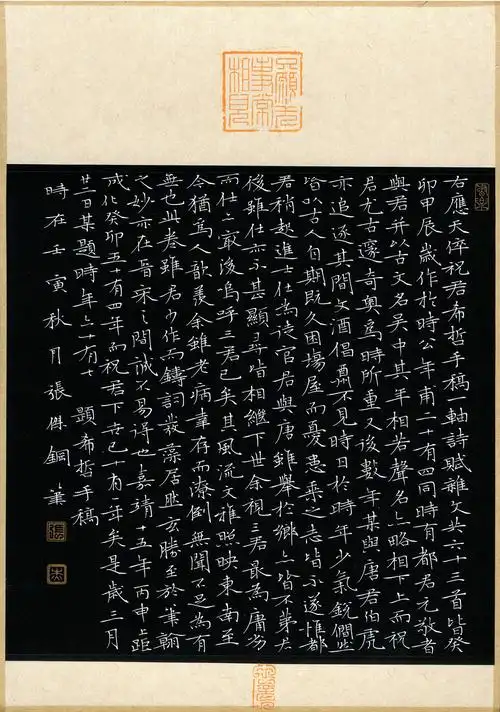 只願无事常相見
右應天倅祝君希哲手稿一軸詩賦雜文共六十三首皆癸
卯甲辰歲作於時公年甫二十有四同時有都君元敬者
與君并以古文名吳中其年相若聲名亦略相上下而祝
君尤古邃奇奧為時所重又後數年某與唐君伯虎
亦追逐其間文酒倡酬不見時日於時年少氣銳僴然
皆以古人自期既久困場屋而憂患乘之志皆不遂惟都
君稍起進士仕為徒官君與唐雖舉於鄉亦皆不第其
後雖仕亦不甚顯尋皆相繼下世余視三君最為庸劣
而仕亦最後嗚呼三君已矣其風流文雅照映東南至
今猶為人歆羨余雖老病幸存而潦倒無聞不足為有
無也此卷雖君少作而鑄詞發藻居然玄勝至於筆翰
之妙亦在晉宋之間誠不易得也嘉靖十五年丙申上距
成化癸卯五十有四年而祝君下世已十有年矣是歲三月
廿二日某題時年六十有七 題希哲手稿
時在壬寅秋月張傑鋼筆
張